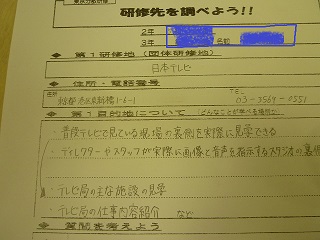 東京分散研修
研修先を調べよう!!
2年
3年 名前
◆ 第1研修地(団体研修地)
日本テレビ
◆ 住所・電話番号
住所 TEL
03-3569-0551
◆ 第1目的地について どんなことが学べる場所か
・普段テレビで見ている現場の裏側を実際に見学できる
・ディレクターやスタッフが実際に画像と音声を表示するスタジオの裏側
・テレビ局の主な施設の見学
・テレビ局の仕事内容紹介 など
◆ 質問を考えよう